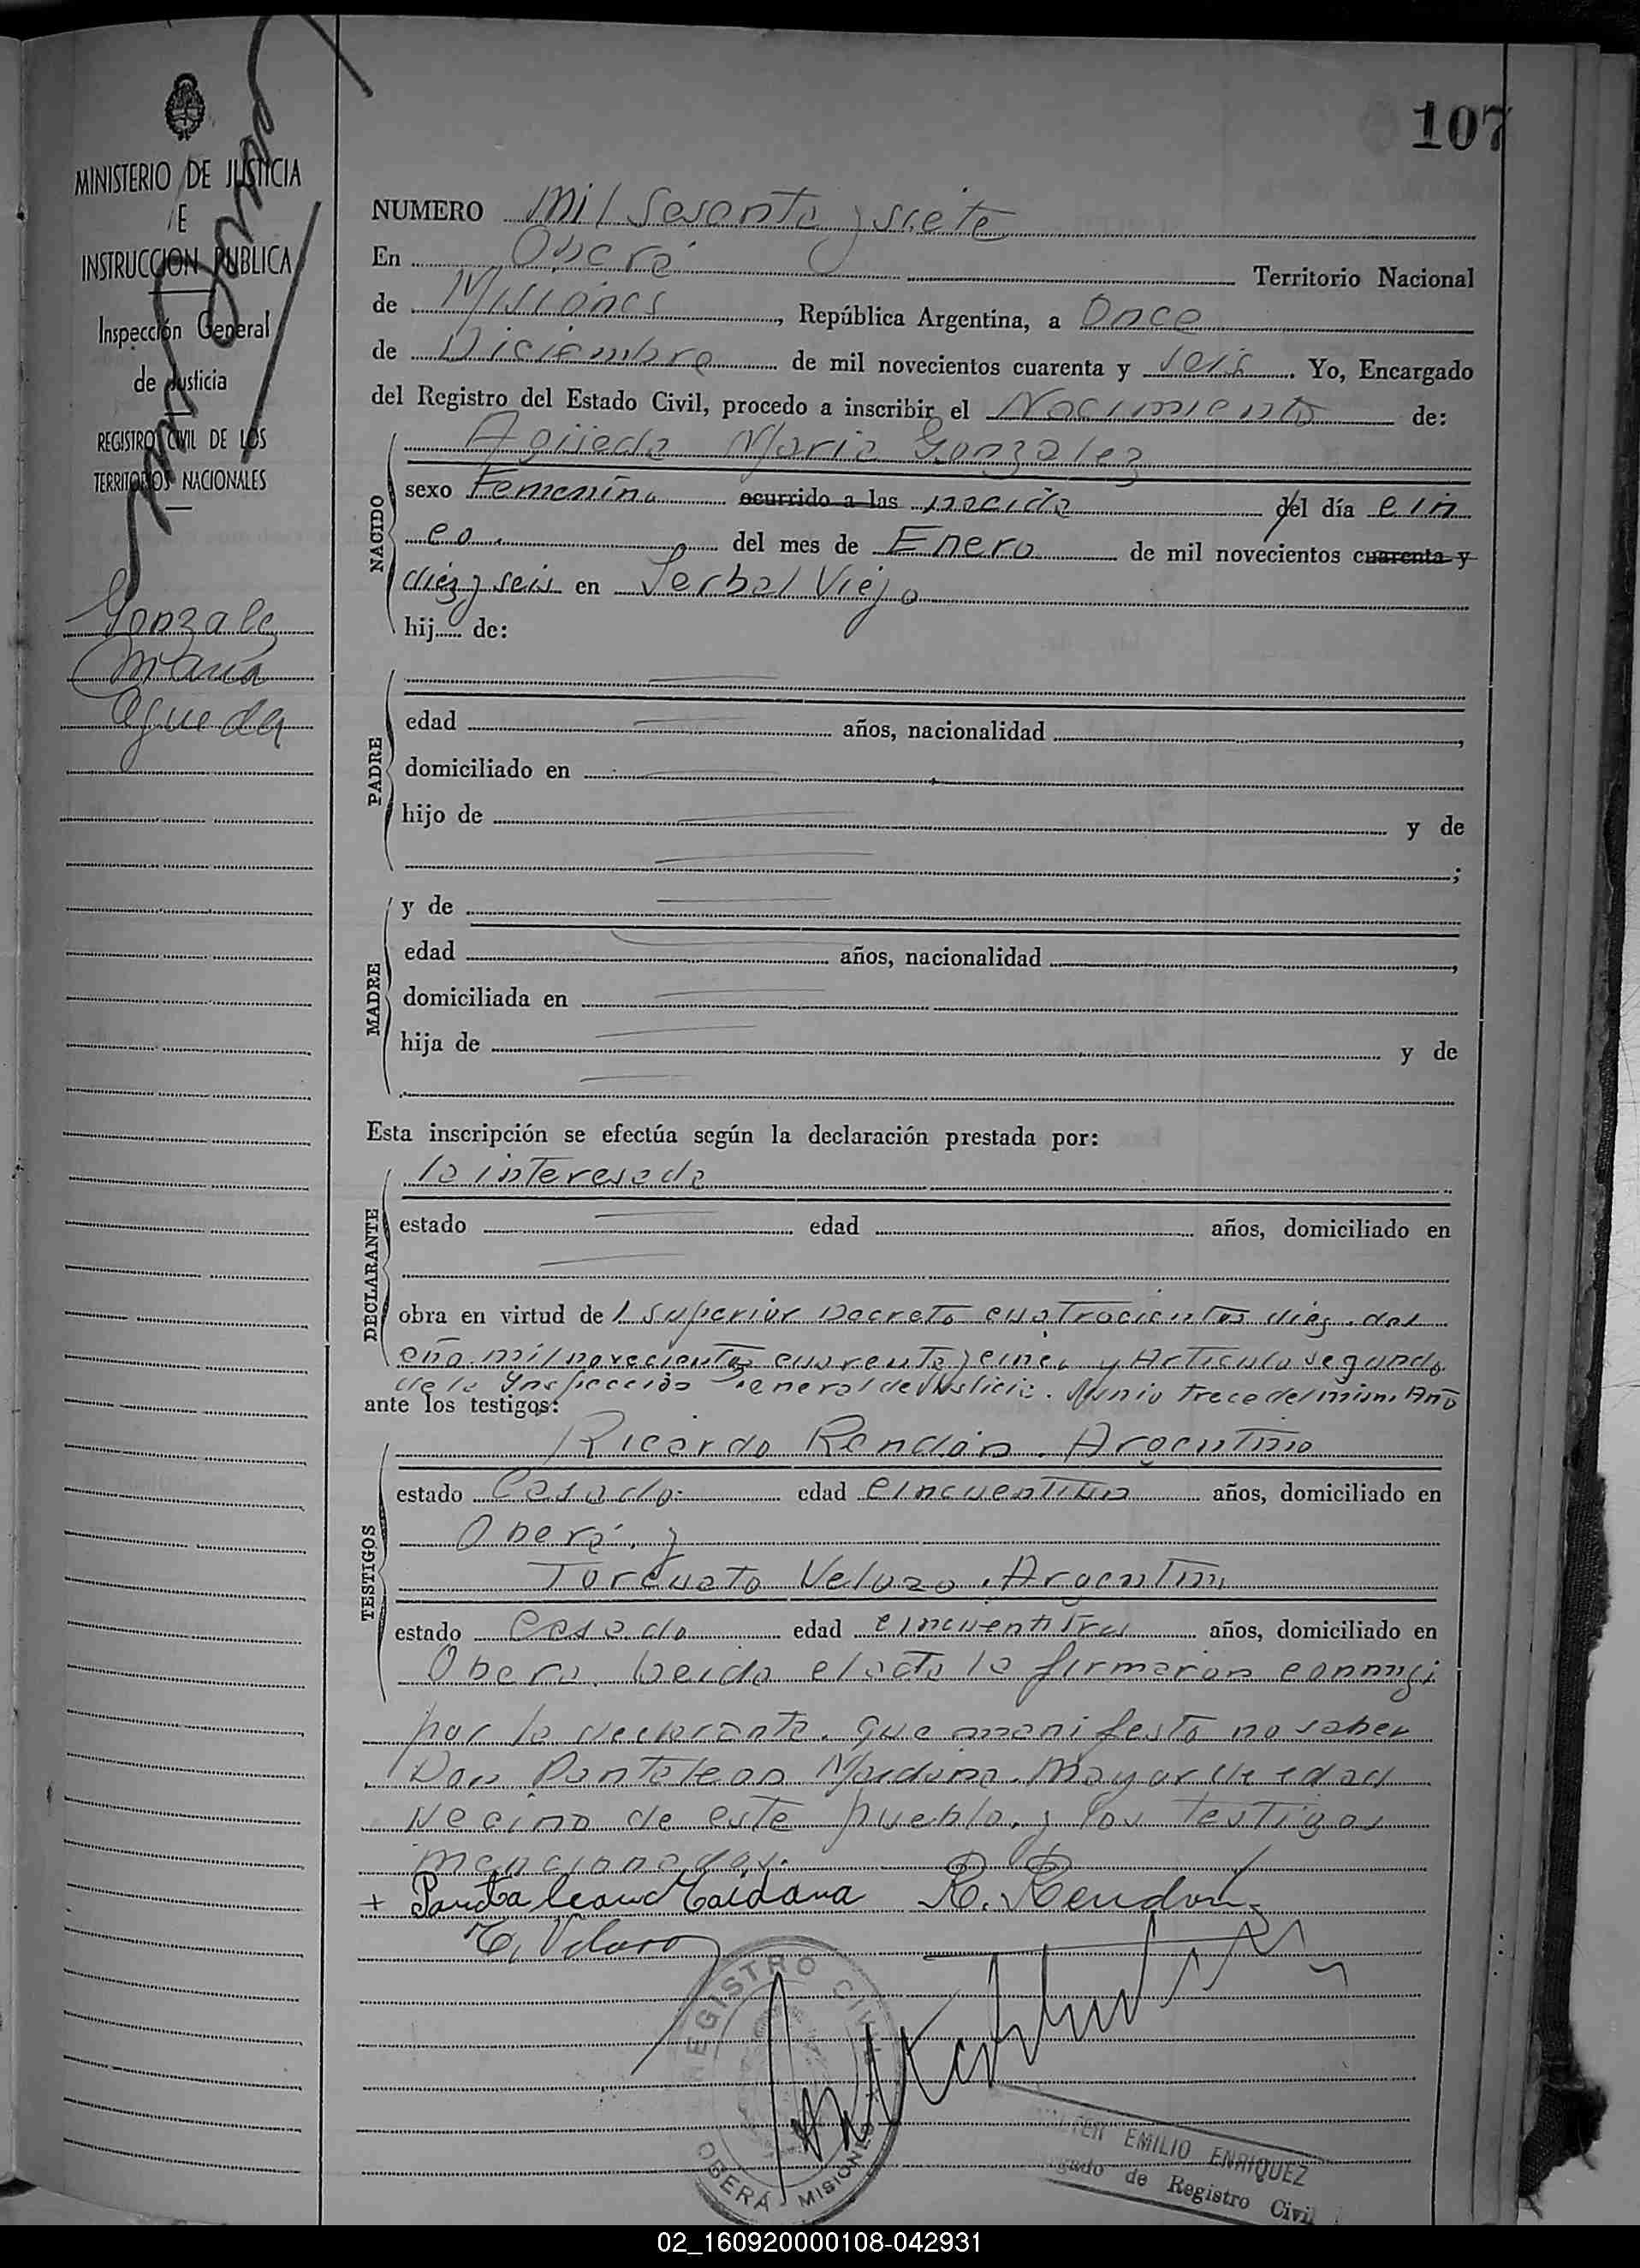 107
MINISTERIO DE JUSTICIA
E
INSTRUCCION PUBLICA
Inspección General
de Justicia
REGISTRO CIVIL DE LOS
TERRITORIOS NACIONALES
Gonzalez
Maria
Agueda
NUMERO Mil Sesenta y siete
En Oberá Territorio Nacional
de Misiones, República Argentina, a Once
de Diciembre de mil novecientos cuarenta y seis. Yo, Encargado
del Registro del Estado Civil, procedo a inscribir el Nacimiento de:
NACIDO
Agüeda Maria Gonzalez
sexo Femenino ocurrido a las nacida del día cin
co. del mes de Enero de mil novecientos cuarenta y
diez y seis en Yerbal Viejo
hij de:
PADRE
edad años, nacionalidad ,
domiciliado en
hijo de y de
;
MADRE
y de
edad años, nacionalidad ,
domiciliada en
hija de y de
Esta inscripción se efectúa según la declaración prestada por:
DECLARANTE
la interesada
estado edad años, domiciliado en
obra en virtud de l superior Decreto cuatrocientos diez. del
año mil novecientos cuarenta y cinco y Articulo segundo
de la Inspección General de Justicia. Junio trece del mismo Año
ante los testigos:
TESTIGOS
Ricardo Rendón. Argentino
estado Casado. edad cincuentiun años, domiciliado en
Oberá. y
Torcuato Velozo. Argentino
estado Casado edad cincuentitres años, domiciliado en
Oberá. Leida el acta la firmaron conmigo
por la declarante. que manifestó no saber
Don Pantaleon Maidana. Mayor de edad
Vecino de este pueblo. y los testigos
mencionados.
+ Pantaleon Maidana R. Rendon
T. Velozo
REGISTRO CIVIL
OBERÁ MISIONES
EMILIO ENRIQUEZ
de Registro Civil
02_160920000108-042931